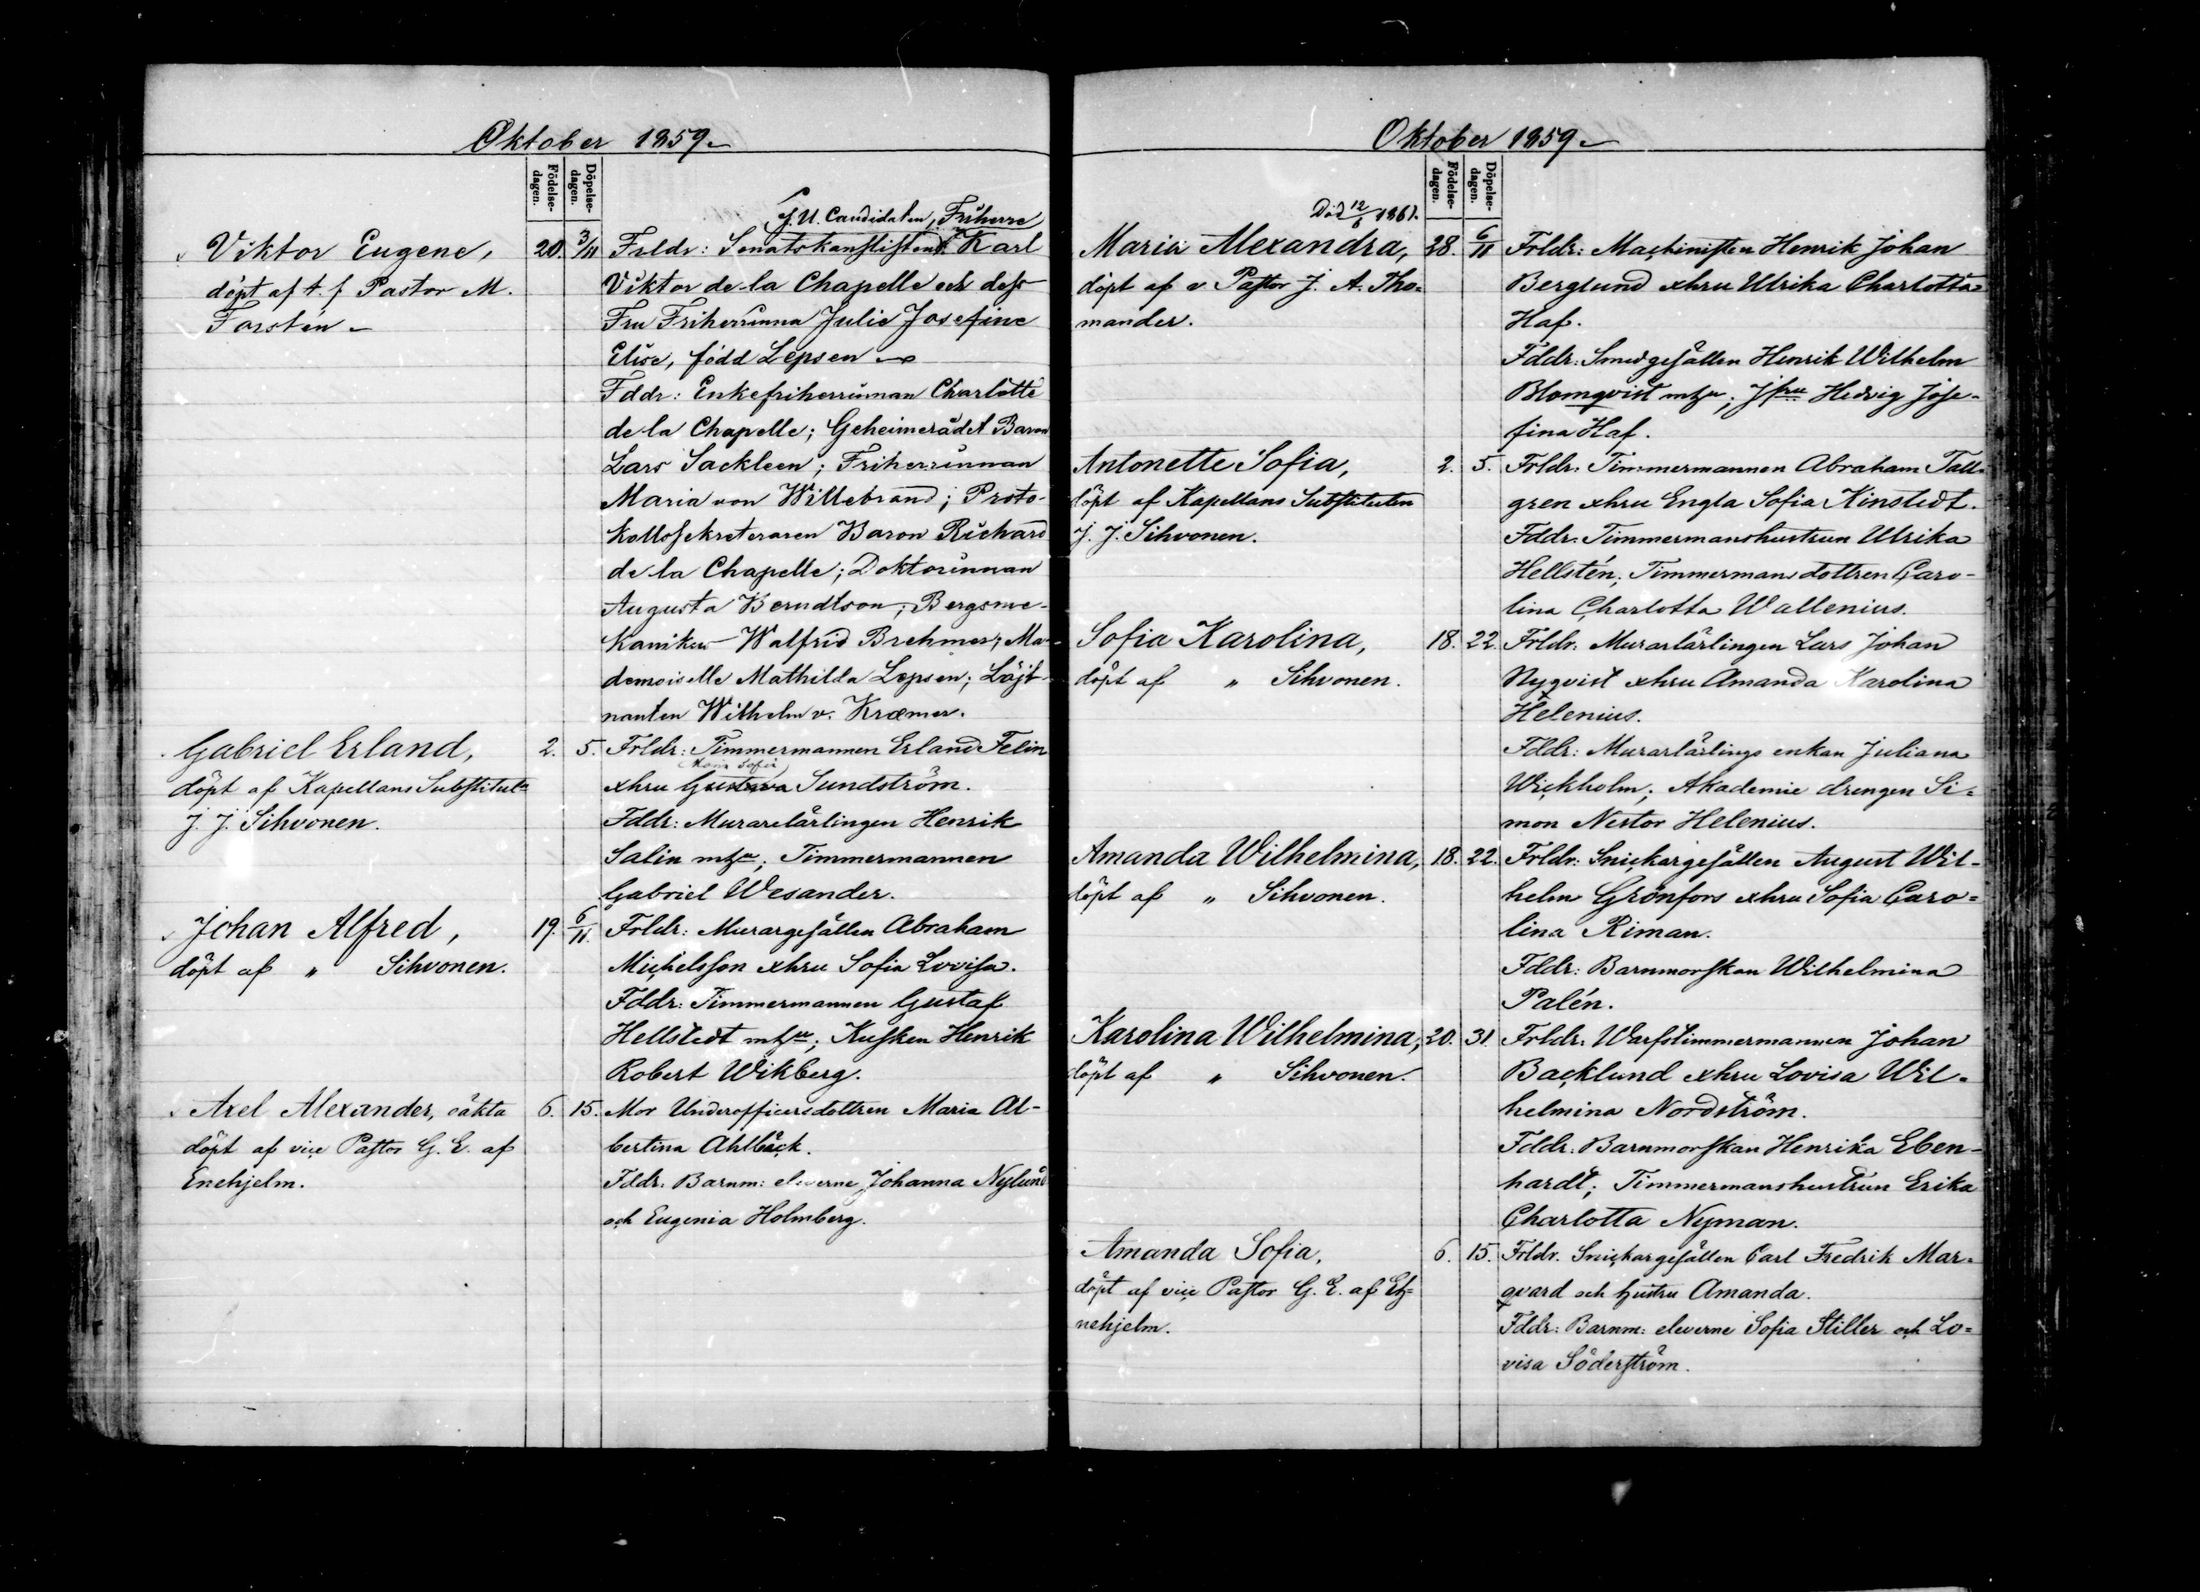 Oktober 1859.
Födelse-
dagen.
Döpelse-
dagen.
Viktor Eugene,
döpt af t. f Pastor M.
Forstén
20. 3/11
J.U. Candidaten, Friherre
Frldr: Senatskanslisten Karl
Viktor de la Chapelle och dess
Fru Friherrinna Julie Josefine
Elise, född Lepsen
Fddr: Enkefriherrinnan Charlotte
de la Chapelle; Geheimerådet Baron
Lars Sackleen; Friherrinnan
Maria von Willebrand; Proto-
kollssekreteraren Baron Richard
de la Chapelle; Doktorinnan
Augusta Berndtson; Bergsme-
kaniker Walfrid Brehmer; Ma-
demoiselle Mathilda Lepsen; Löjt-
nanten Wilhelm v. Kræmer.
Gabriel Erland,
döpt af Kapellans Substitut
J. J. Sihvonen.
2. 5.
Frldr: Timmermannen Erland Felin
(Maria Sofia)
xhru Gustava Sundström.
Fddr: Murarelärlingen Henrik
Salin mhu; Timmermannen
Gabriel Wesander.
Johan Alfred,
döpt af " Sihvonen.
19. 6/11.
Frldr: Murargesällen Abraham
Michelsson xhru Sofia Lovisa.
Fddr: Timmermannen Gustaf
Hellstedt mhu; Kusken Henrik
Robert Wikberg.
Axel Alexander, oäkta
döpt af vice Pastor G. E. af
Enehjelm.
6. 15.
Mor Underofficersdottren Maria Al-
bertina Ahlbäck.
Fddr. Barnm: eleverne Johanna Nylund
och Eugenia Holmberg.
Oktober 1859.
Födelse-
dagen.
Döpelse-
dagen.
Död 12/6 1861.
Maria Alexandra,
döpt af v Pastor J. A. Tho-
mander.
28. 6/11
Frldr: Machinisten Henrik Johan
Berglund xhru Ulrika Charlotta
Haf.
Fddr: Smedgesällen Henrik Wilhelm
Blomqvist mhu; Jfru Hedvig Jose-
fina Haf.
Antonette Sofia,
döpt af Kapellans Substituten
J. J. Sihvonen.
2. 5.
Frldr: Timmermannen Abraham Tall-
gren xhru Engla Sofia Kinstedt.
Fddr: Timmermanshustrun Ulrika
Hellstén; Timmermans dottren Caro-
lina Charlotta Wallenius.
Sofia Karolina,
döpt af " Sihvonen.
18. 22.
Frldr: Murarlärlingen Lars Johan
Nyqvist xhru Amanda Karolina
Helenius.
Fddr: Murarlärlings enkan Juliana
Wickholm; Akademie drengen Si-
mon Nestor Helenius.
Amanda Wilhelmina,
döpt af " Sihvonen.
18. 22.
Frldr: Snickargesällen August Wil-
helm Grönfors xhru Sofia Caro-
lina Riman.
Fddr: Barnmorskan Wilhelmina
Palén.
Karolina Wilhelmina,
döpt af " Sihvonen.
20. 31.
Frldr. Warfstimmermannen Johan
Backlund xhru Lovisa Wil-
helmina Nordström.
Fddr: Barnmorskan Henrika Eben-
hardt; Timmermanshustrun Erika
Charlotta Nyman.
Amanda Sofia,
döpt af vice Pastor G. E. af E-
nehjelm.
6. 15.
Frldr. Snickargesällen Carl Fredrik Mar-
qvard och hustru Amanda.
Fddr: Barnm: eleverne Sofia Stiller och Lo-
visa Söderström.